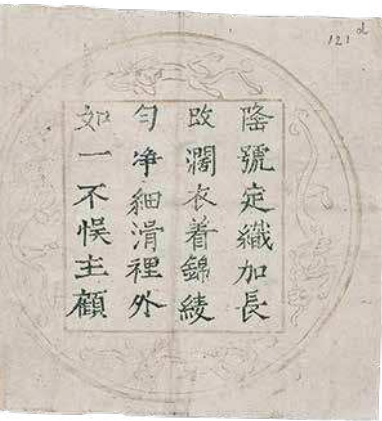 121 d
隆號定織加長
改濶衣着錦綾
勻净細滑裡外
如一不悮主顧